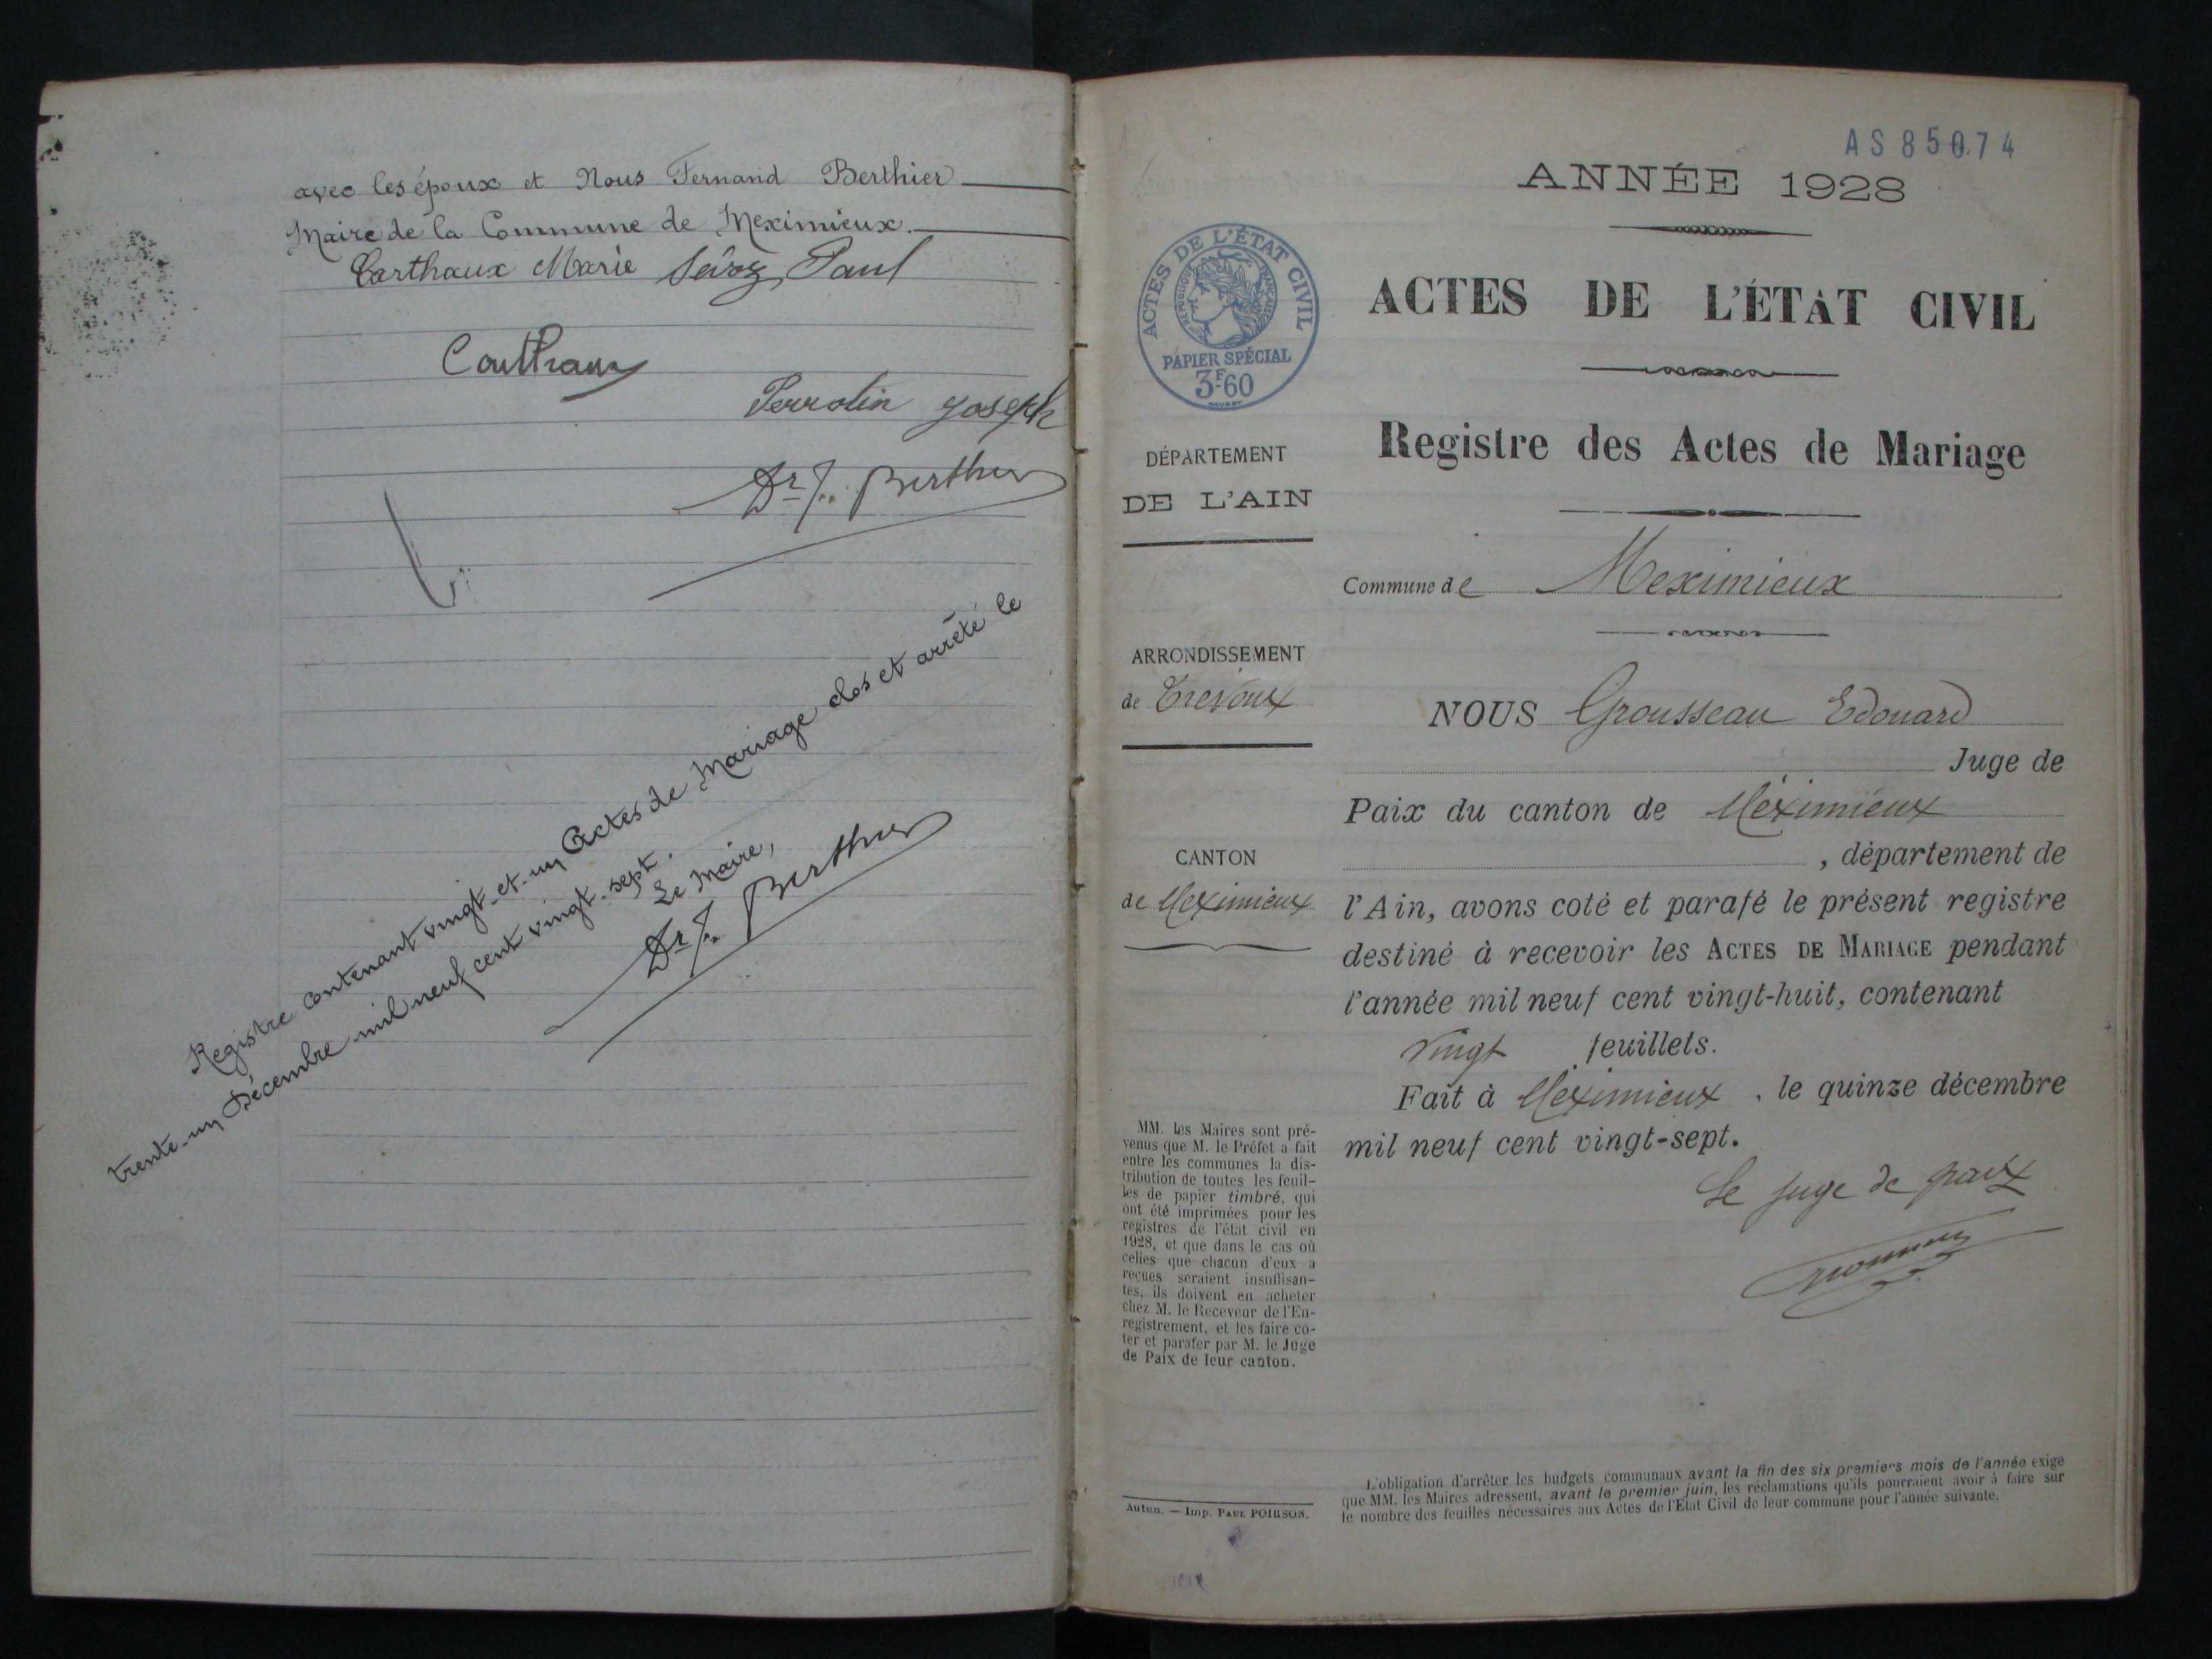 avec les époux et Nous Fernand Berthier
Maire de la Commune de Meximieux.
Carthaux Marie Sévoz Paul
Carthaux
Perrolin Joseph
Dr F. Berthier
Registre contenant vingt-et-un Actes de Mariage clos et arrêté le
trente-un Décembre mil neuf cent vingt-sept.
Le Maire,
Dr F. Berthier
AS 85074
ANNÉE 1928
ACTES DE L'ÉTAT CIVIL
RÉPUBLIQUE FRANÇAISE
PAPIER SPÉCIAL
3F60
ACTES DE L'ÉTAT CIVIL
Registre des Actes de Mariage
DÉPARTEMENT
DE L'AIN
Commune de Meximieux
ARRONDISSEMENT
de Trevoux
CANTON
de Meximieux
NOUS Grousseau Edouard
Juge de
Paix du canton de Méximieux
, département de
l'Ain, avons coté et parafé le présent registre
destiné à recevoir les ACTES DE MARIAGE pendant
l'année mil neuf cent vingt-huit, contenant
vingt feuillets.
Fait à Meximieux, le quinze décembre
mil neuf cent vingt-sept.
Le juge de paix
MM. les Maires sont pré-
venus que M. le Préfet a fait
entre les communes la dis-
tribution de toutes les feuil-
les de papier timbré, qui
ont été imprimées pour les
registres de l'état civil en
1928, et que dans le cas où
celles que chacun d'eux a
reçues seraient insuffisan-
tes, ils doivent en acheter
chez M. le Receveur de l'En-
registrement, et les faire co-
ter et parafer par M. le Juge
de Paix de leur canton.
Autun. — Imp. PAUL POIRSON.
L'obligation d'arrêter les budgets communaux avant la fin des six premiers mois de l'année exige
que MM. les Maires adressent, avant le premier juin, les réclamations qu'ils pourraient avoir à faire sur
le nombre des feuilles nécessaires aux Actes de l'Etat Civil de leur commune pour l'année suivante.